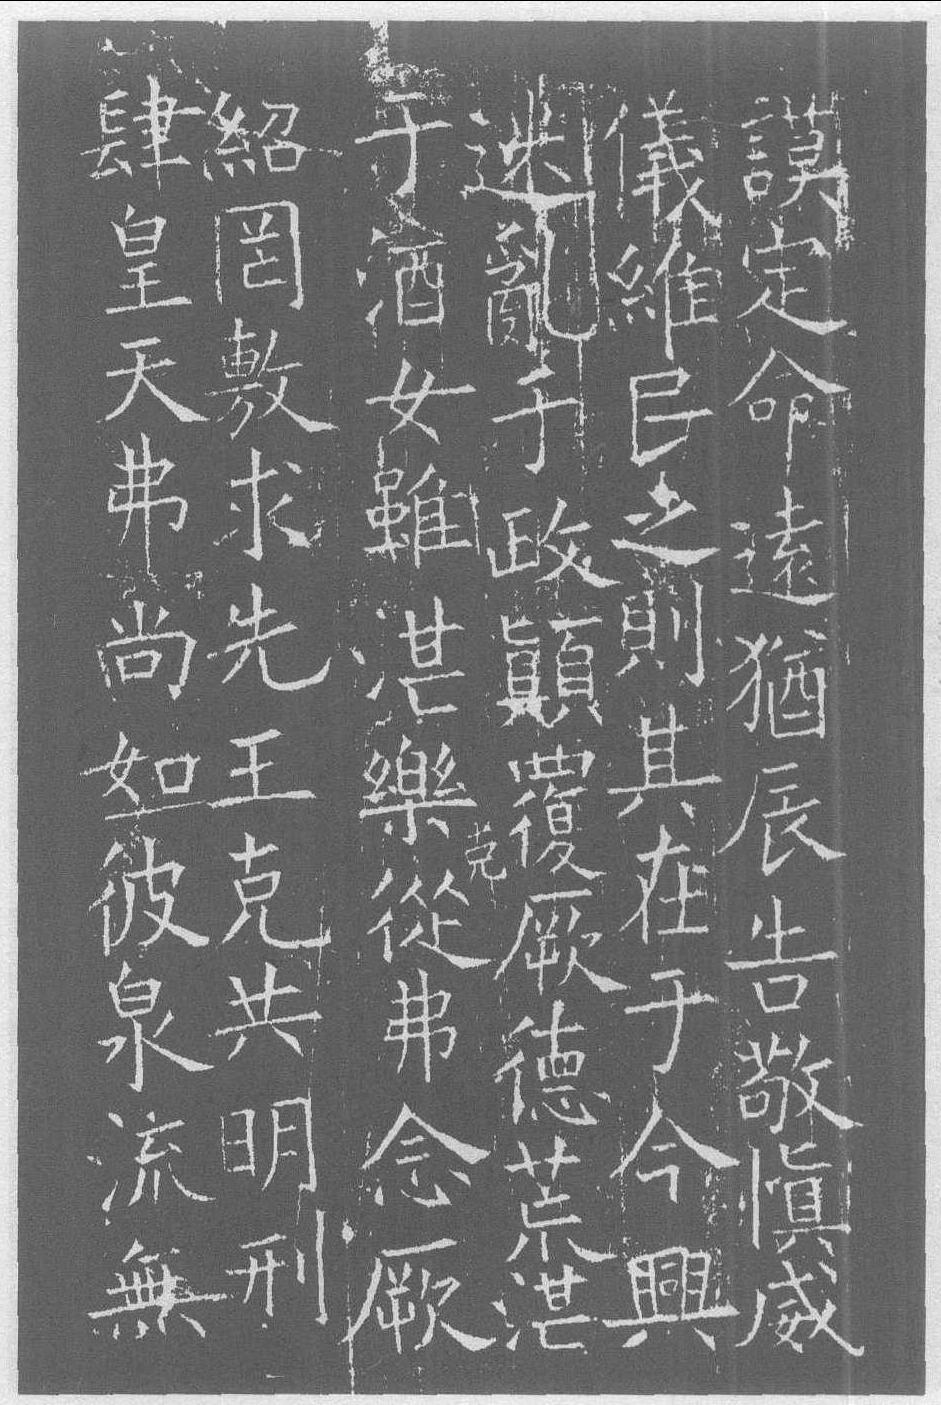 謨定命遠猶辰告敬慎威
儀維民之則其在于今興
迷亂于政顛覆厥德荒湛
于酒女雖湛樂從弗念厥
克
紹罔敷求先王克共明刑
肆皇天弗尚如彼泉流無